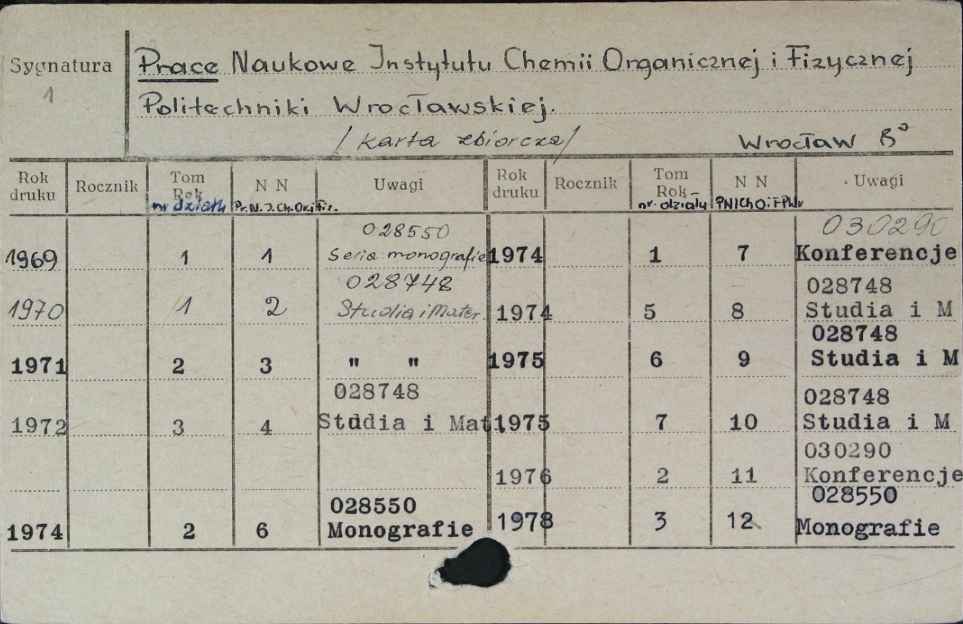 Sygnatura
1
Prace Naukowe Instytutu Chemii Organicznej i Fizycznej
Politechniki Wrocławskiej.
/karta zbiorcza/ Wrocław 8°
Rok druku Rocznik Tom Rok N N Uwagi Rok druku Rocznik Tom Rok N N Uwagi
nr działu Pr.N.I.Ch.O.i Fiz. nr. działu PNIChO.i FPWr
028550 030290
1969 1 1 Seria monografie 1974 1 7 Konferencje
028748 028748
1970 1 2 Studia i Mater. 1974 5 8 Studia i M
028748
1971 2 3 " " 1975 6 9 Studia i M
028748 028748
1972 3 4 Studia i Mat 1975 7 10 Studia i M
030290
1976 2 11 Konferencje
028550 028550
1974 2 6 Monografie 1978 3 12 Monografie